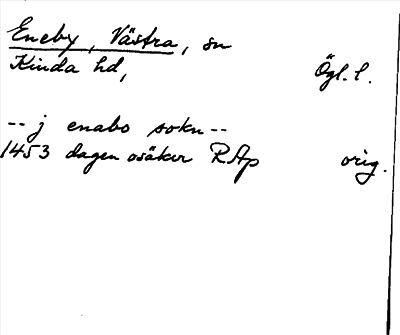 Eneby, Västra, sn
Kinda hd, Ögl. l.
-- j enabo sokn --
1453 dagen osäker RAp orig.